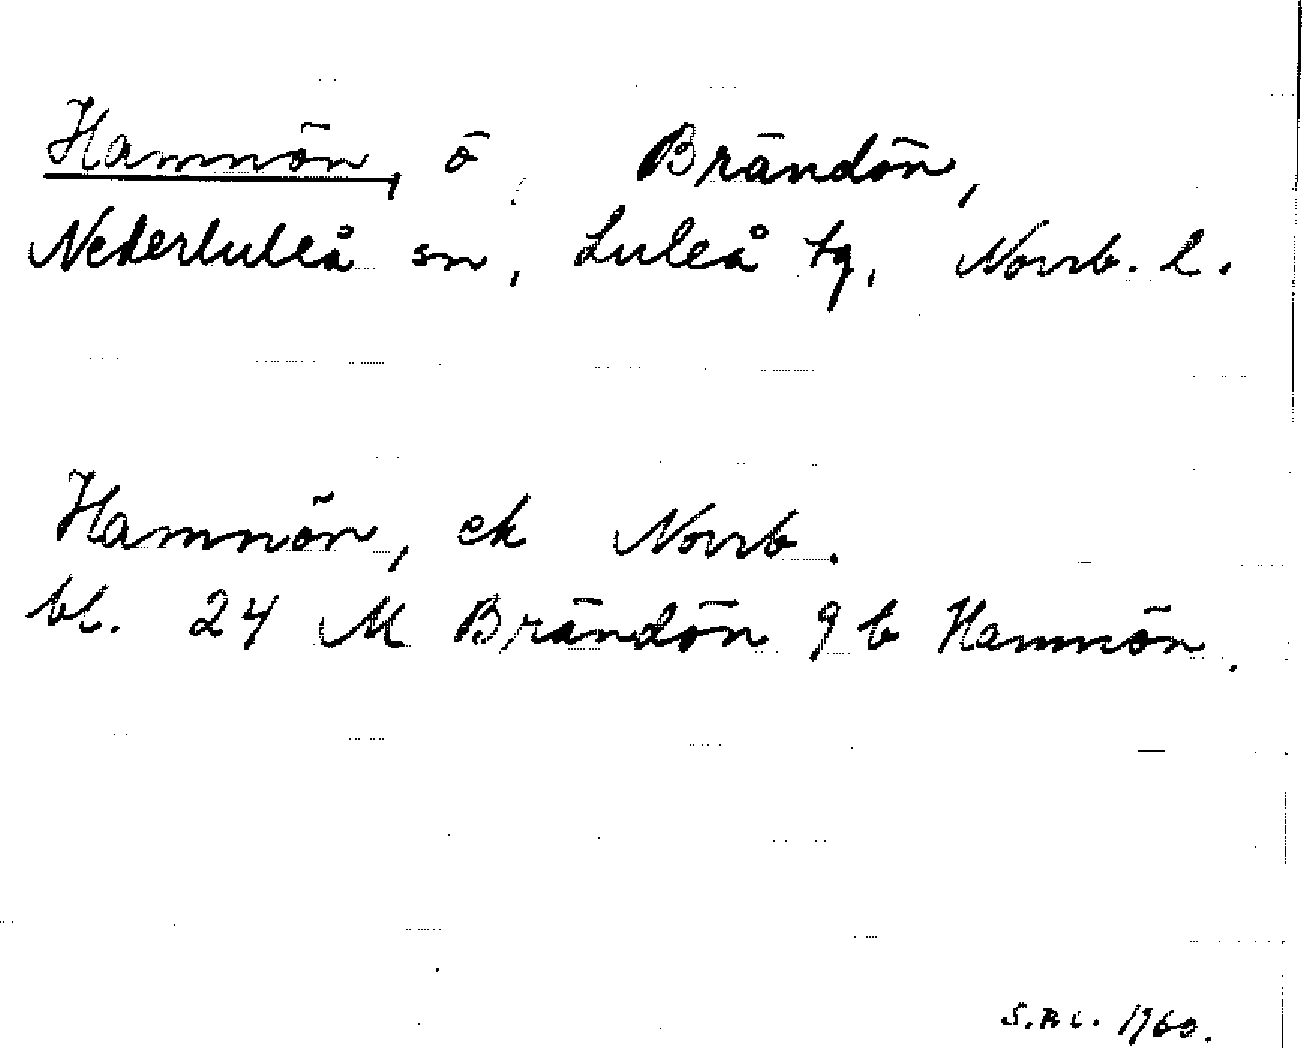 Hamnön, ö, Brändön,
Nederluleå sn, Luleå tg, Norrb. l.
Hamnön, ek Norrb.
bl. 24 M Brändön 9 b Hamnön.
1960.